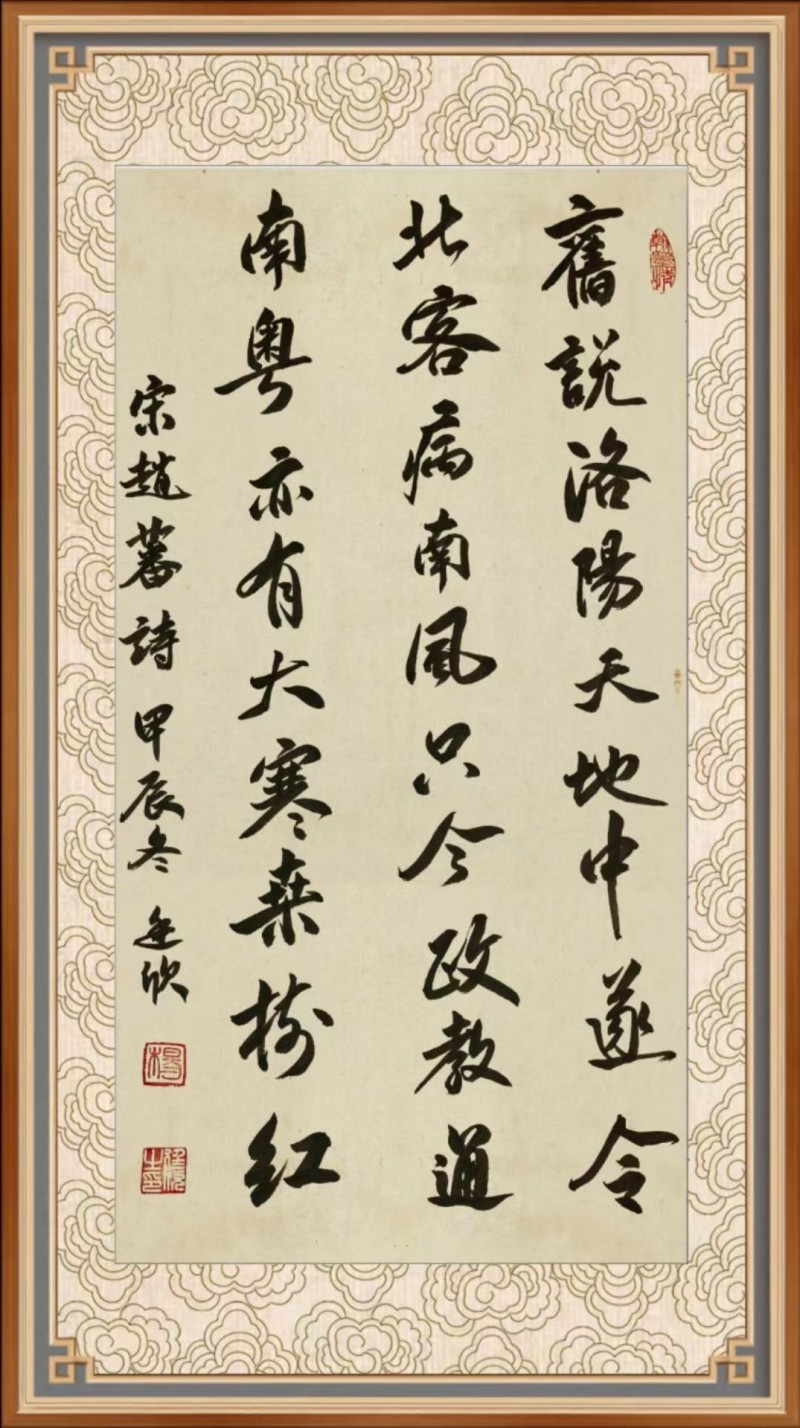 舊說洛陽天地中遂令
北客病南風只今政教通
南粵亦有大寒桒樹紅
宋趙蕃詩 甲辰冬 欣
楊